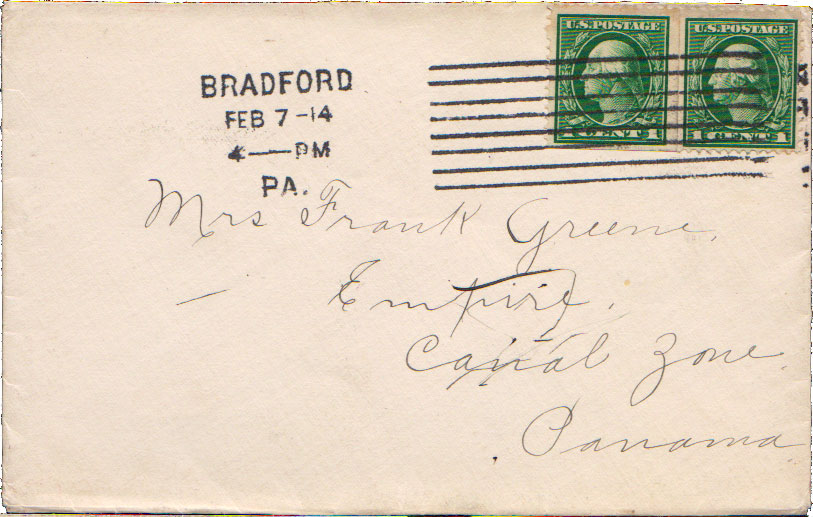 U.S.POSTAGE U.S.POSTAGE
1 CENT 1 1 CENTS 1
BRADFORD
FEB 7-14
4—PM
PA.
Mrs Frank Greene.
Empire.
Canal Zone.
Panama